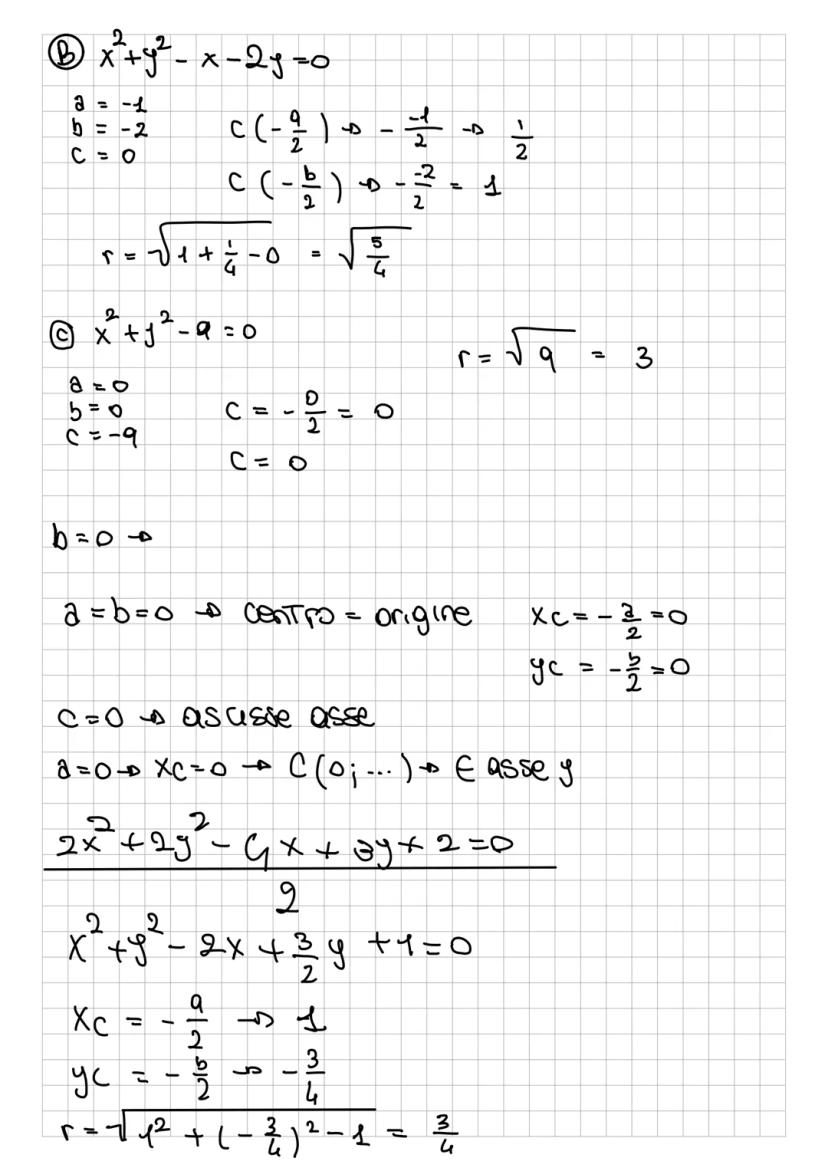 Ⓑ x² + y² - x - 2y = 0
a = -1
b = -2
c = 0
C (-a/2) → - -1/2 → 1/2
C (-b/2) → - -2/2 = 1
r = √(1 + 1/4 - 0) = √(5/4)
Ⓒ x² + y² - 9 = 0
r = √9 = 3
a = 0
b = 0
c = -9
C = - 0/2 = 0
C = 0
b = 0 →
a = b = 0 → centro = origine
xc = - a/2 = 0
yc = - b/2 = 0
c = 0 → ascisse asse
a = 0 → xc = 0 → C (0; ...) → ∈ asse y
2x² + 2y² - 4x + 3y + 2 = 0
2
x² + y² - 2x + 3/2 y + 1 = 0
xc = - a/2 → 1
yc = - b/2 → - 3/4
r = √(1² + (-3/4)² - 1) = 3/4